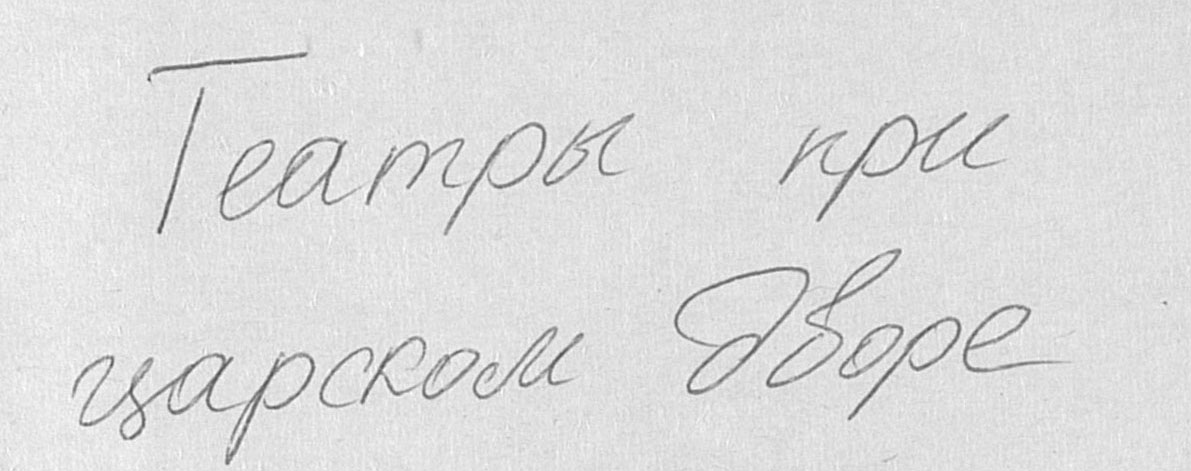 Театры при
царском дворе